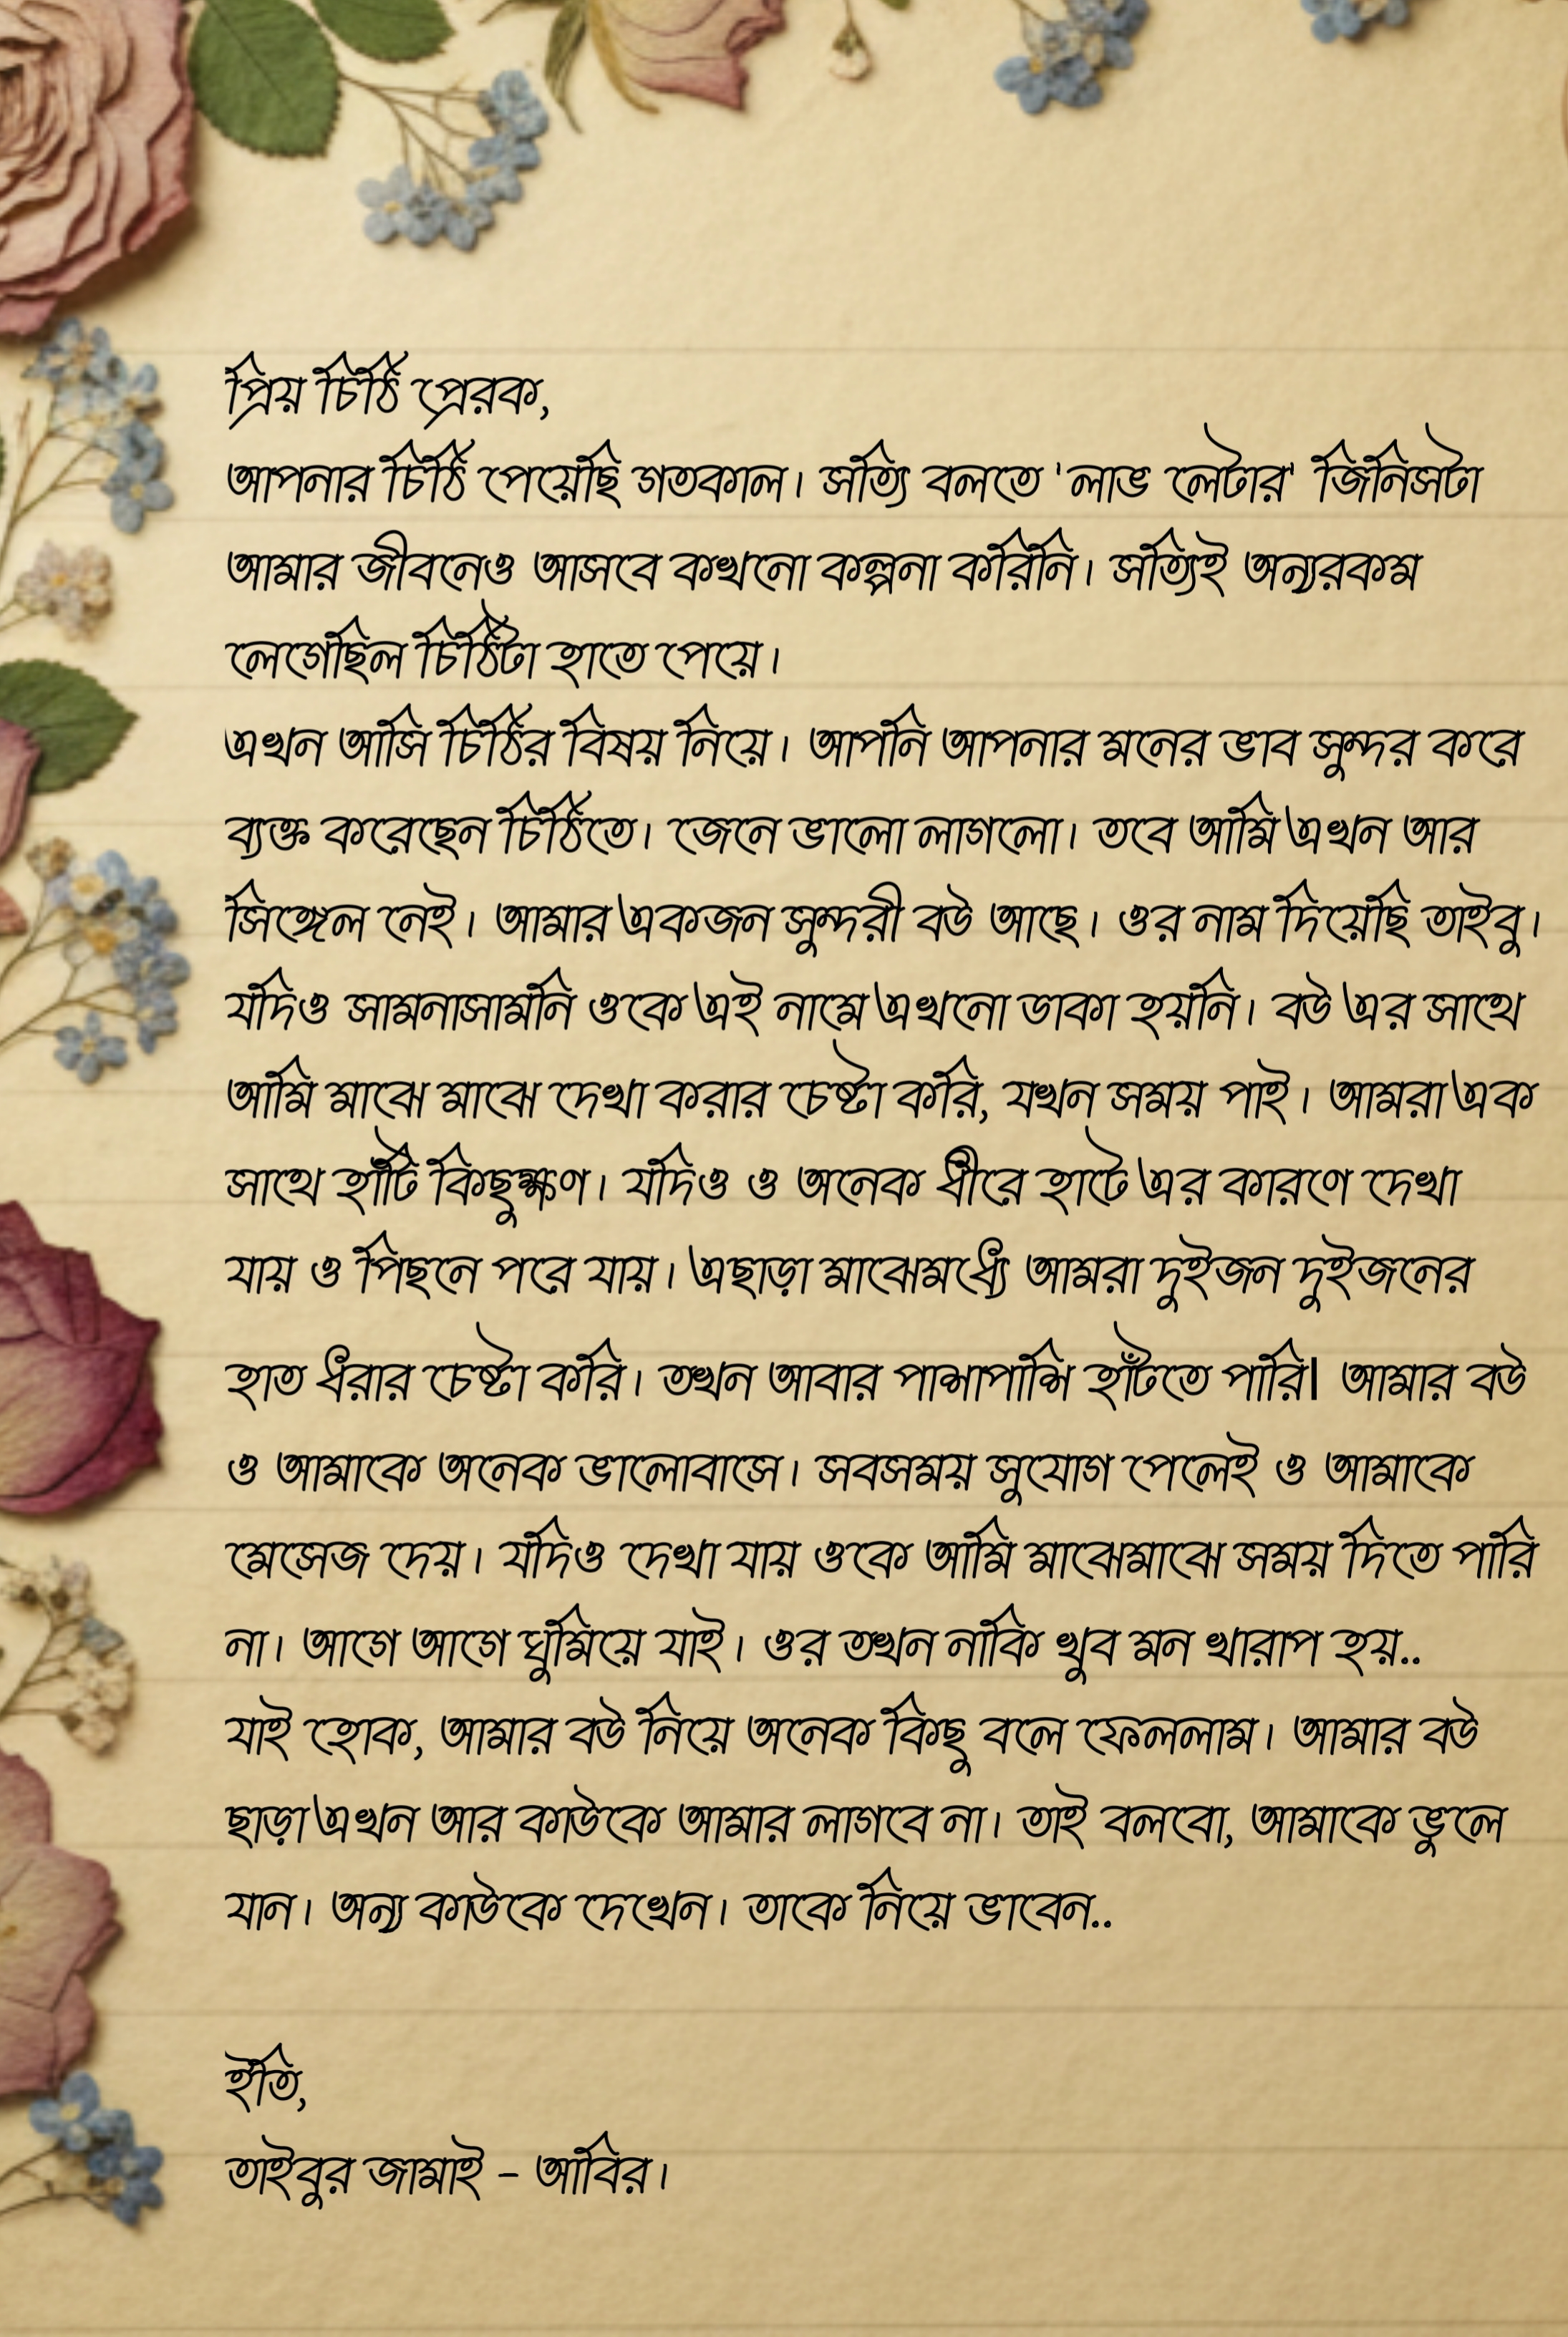 প্রিয় চিঠি প্রেরক,
আপনার চিঠি পেয়েছি গতকাল। সত্যি বলতে 'লাভ লেটার' জিনিসটা
আমার জীবনেও আসবে কখনো কল্পনা করিনি। সত্যিই অন্যরকম
লেগেছিল চিঠিটা হাতে পেয়ে।
এখন আসি চিঠির বিষয় নিয়ে। আপনি আপনার মনের ভাব সুন্দর করে
ব্যক্ত করেছেন চিঠিতে। জেনে ভালো লাগলো। তবে আমি এখন আর
সিঙ্গেল নেই। আমার একজন সুন্দরী বউ আছে। ওর নাম দিয়েছি তাইবু।
যদিও সামনাসামনি ওকে এই নামে এখনো ডাকা হয়নি। বউ এর সাথে
আমি মাঝে মাঝে দেখা করার চেষ্টা করি, যখন সময় পাই। আমরা এক
সাথে হাঁটি কিছুক্ষণ। যদিও ও অনেক ধীরে হাটে এর কারণে দেখা
যায় ও পিছনে পরে যায়। এছাড়া মাঝেমধ্যে আমরা দুইজন দুইজনের
হাত ধরার চেষ্টা করি। তখন আবার পাশাপাশি হাঁটতে পারি| আমার বউ
ও আমাকে অনেক ভালোবাসে। সবসময় সুযোগ পেলেই ও আমাকে
মেসেজ দেয়। যদিও দেখা যায় ওকে আমি মাঝেমাঝে সময় দিতে পারি
না। আগে আগে ঘুমিয়ে যাই। ওর তখন নাকি খুব মন খারাপ হয়..
যাই হোক, আমার বউ নিয়ে অনেক কিছু বলে ফেললাম। আমার বউ
ছাড়া এখন আর কাউকে আমার লাগবে না। তাই বলবো, আমাকে ভুলে
যান। অন্য কাউকে দেখেন। তাকে নিয়ে ভাবেন..
ইতি,
তাইবুর জামাই - আবির।